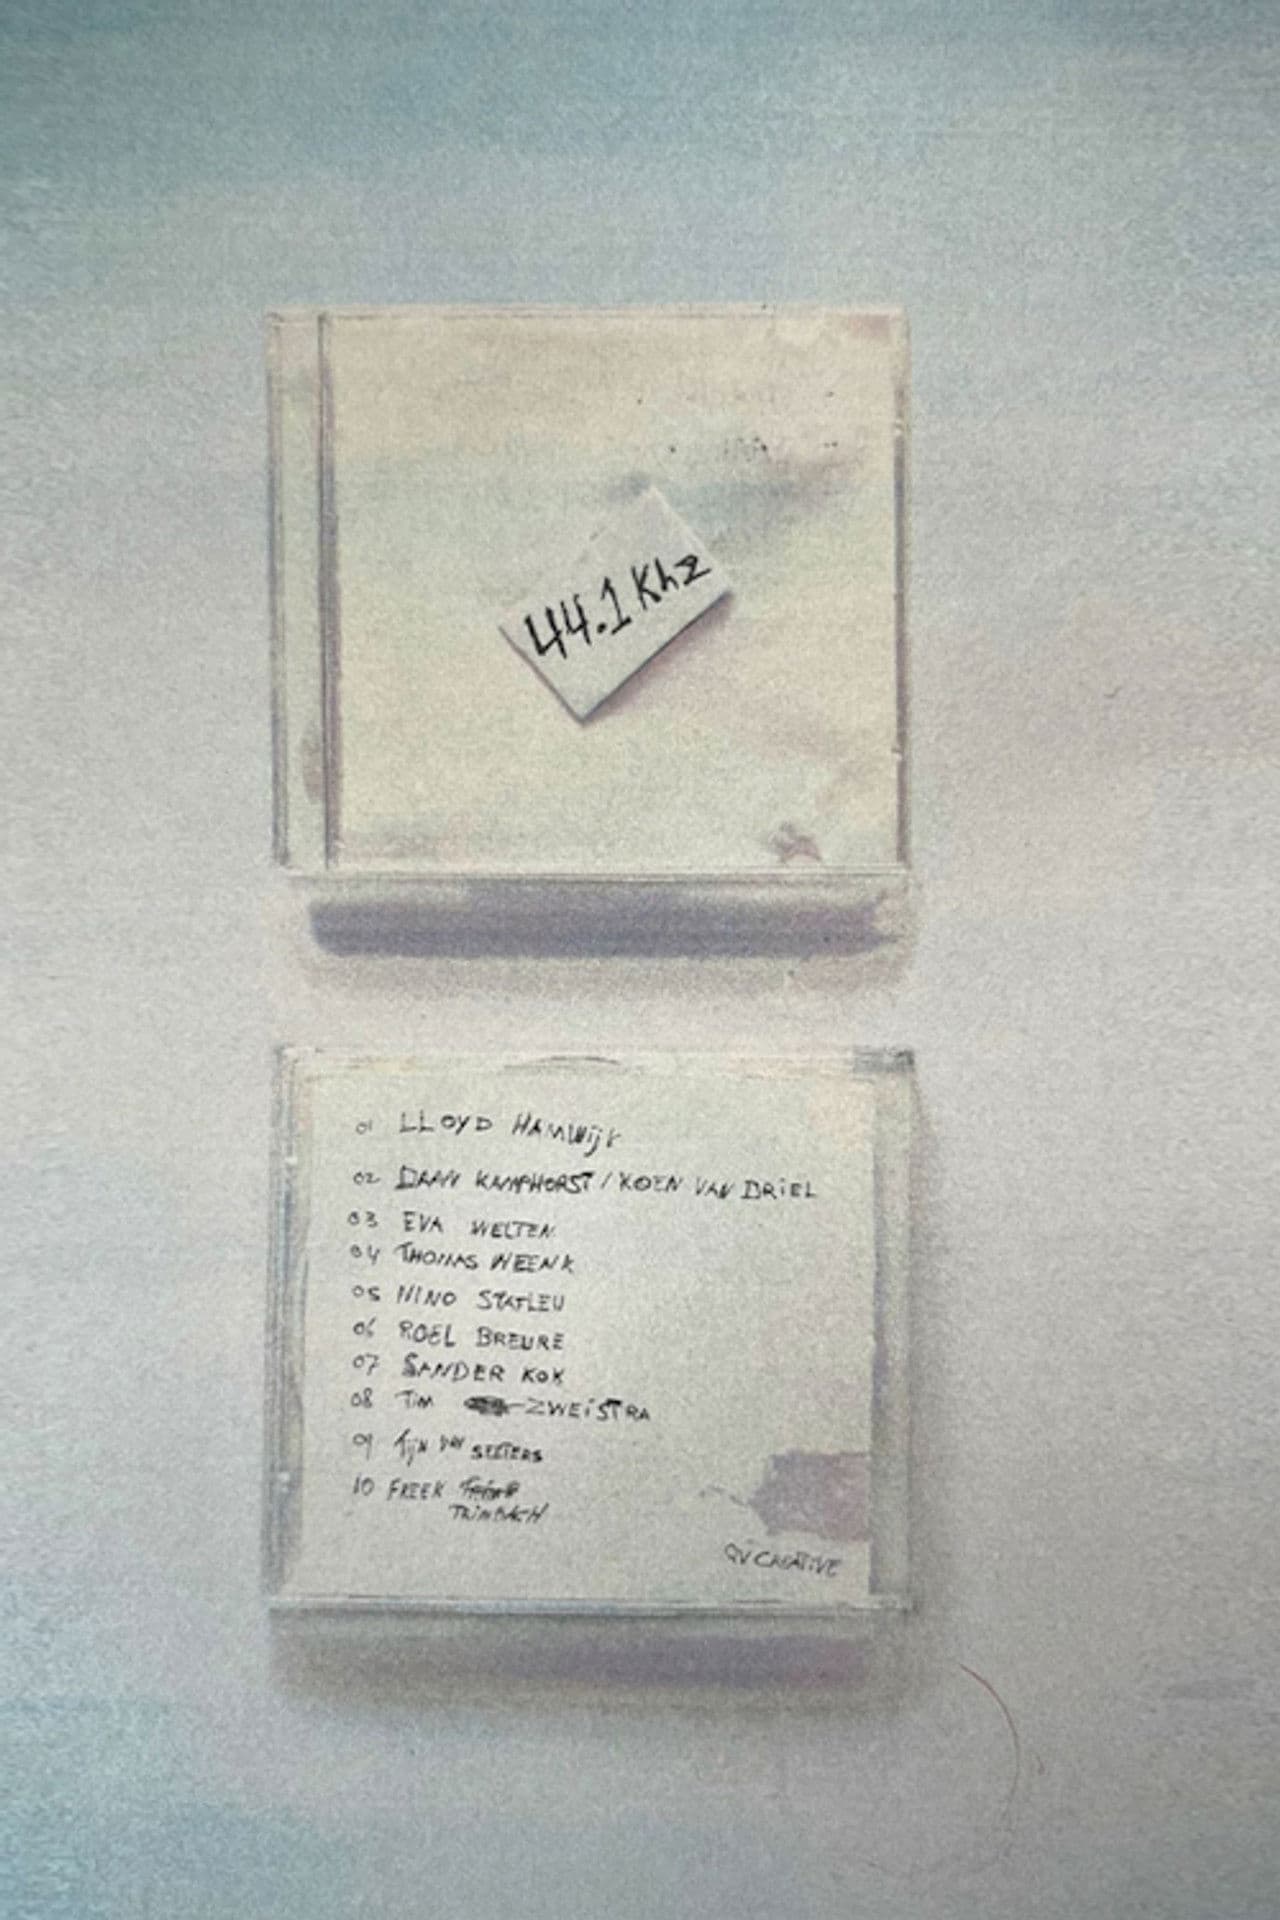 44.1 Khz
01 LLOYD HAMWijk
02 DAAN KAMPHORST / KOEN VAN DRIEL
03 EVA WELTEN
04 THOMAS WEENK
05 NINO STATLEU
06 ROEL BREURE
07 SANDER KOK
08 Tim ZWEiSTRA
09 Tijn VAN SEETERS
10 FREEK
TRIMBACH
QV CREATIVE